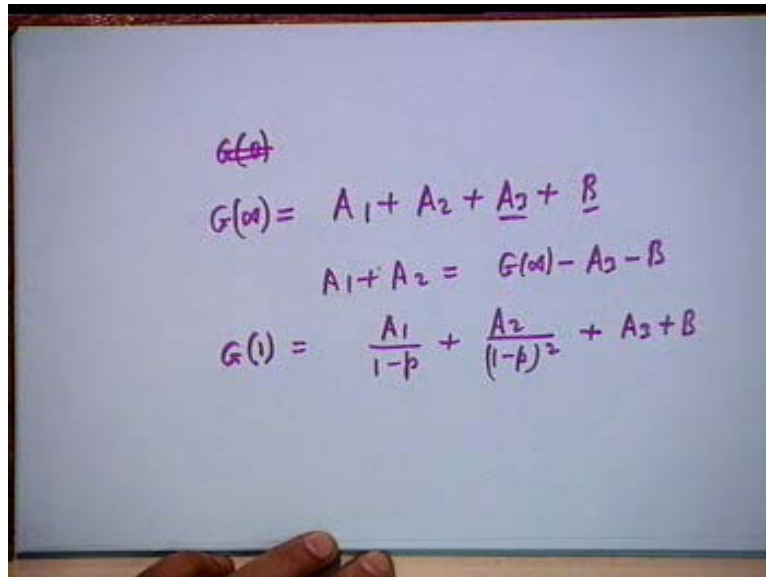 G(0)
G(∞) = A1 + A2 + A3 + B
A1 + A2 = G(∞) - A3 - B
G(1) = A1/(1-p) + A2/(1-p)^2 + A3 + B